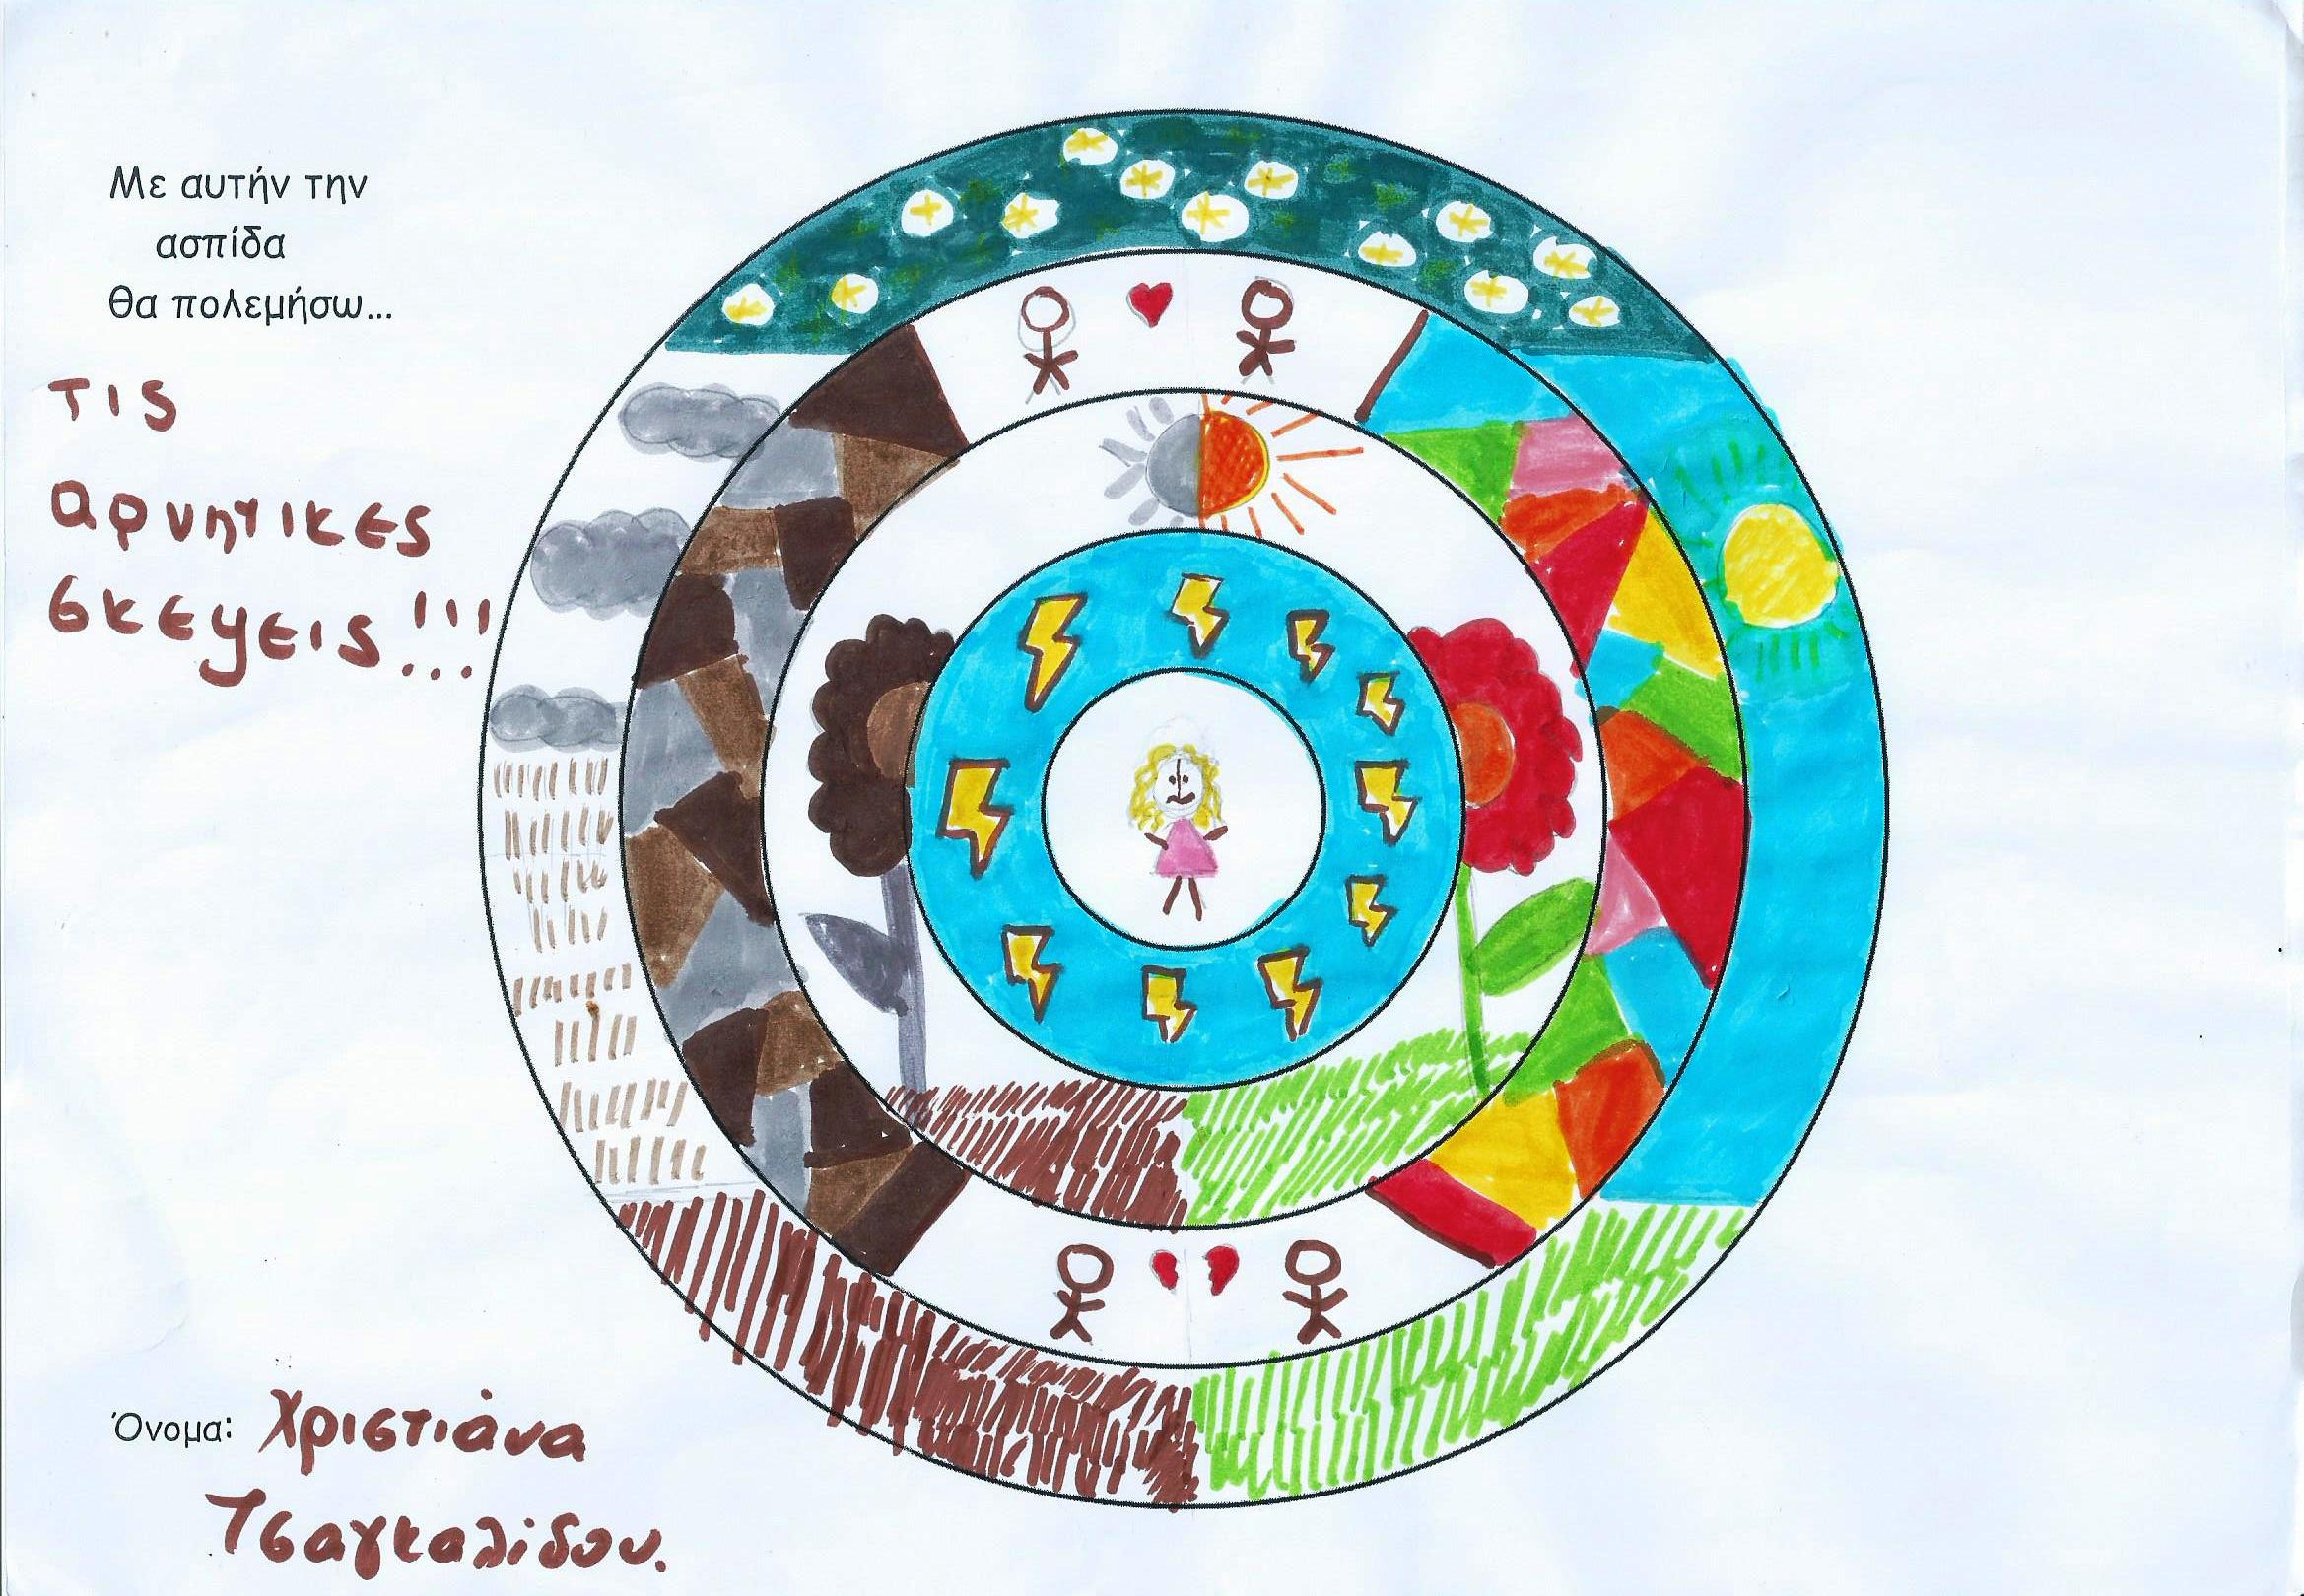 Με αυτήν την
ασπίδα
θα πολεμήσω...
τις
αρνητικες
σκεψεις!!!
Όνομα: Χριστιάνα
Τσαγκαλίδου.